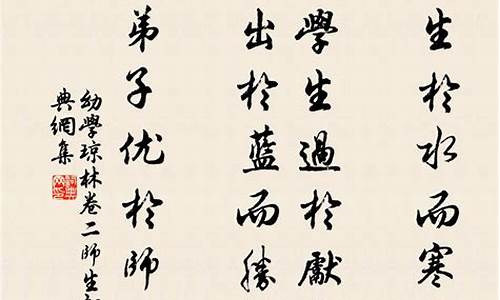 生於水而寒
學生過於獻
出於藍而勝
弟子优於師
幼學琼林卷二師生
典網集